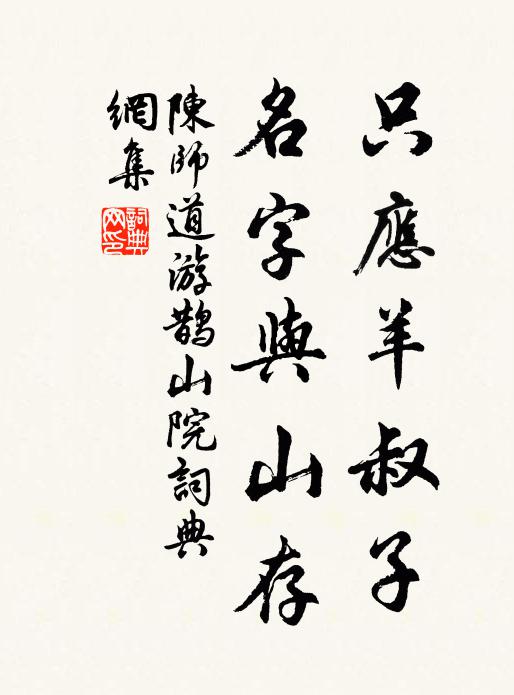 只應羊叔子
名字與山存
陳師道游鵲山院詞典
網集
詞典
网印